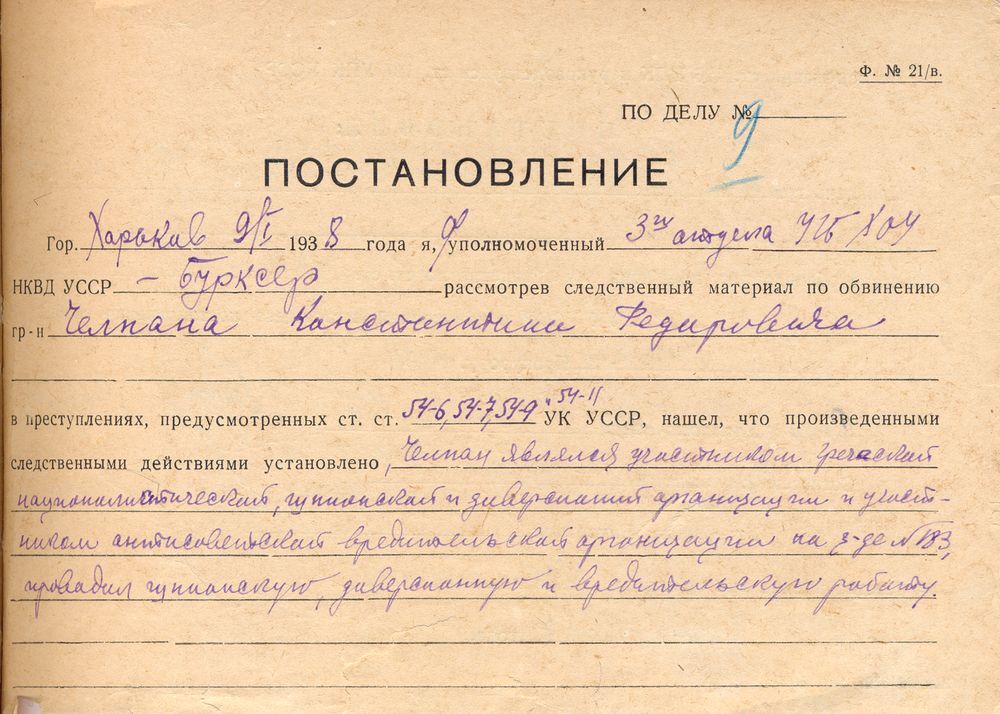 Ф. № 21/в.
ПО ДЕЛУ № 9
ПОСТАНОВЛЕНИЕ
Гор. Харьков 9/I 1938 года я, уполномоченный 3го отдела УГБ ХОУ
НКВД УССР – Бурксер рассмотрев следственный материал по обвинению
гр-н Челпана Константина Федоровича
в преступлениях, предусмотренных ст. ст. 54-6, 54-7, 54-9 и 54-11 УК УССР, нашел, что произведенными
следственными действиями установлено, Челпан являлся участником греческой
националистической, шпионской и диверсионной организации и участ-
ником антисоветской вредительской организации на з-де № 183,
проводил шпионскую, диверсионную и вредительскую работу.